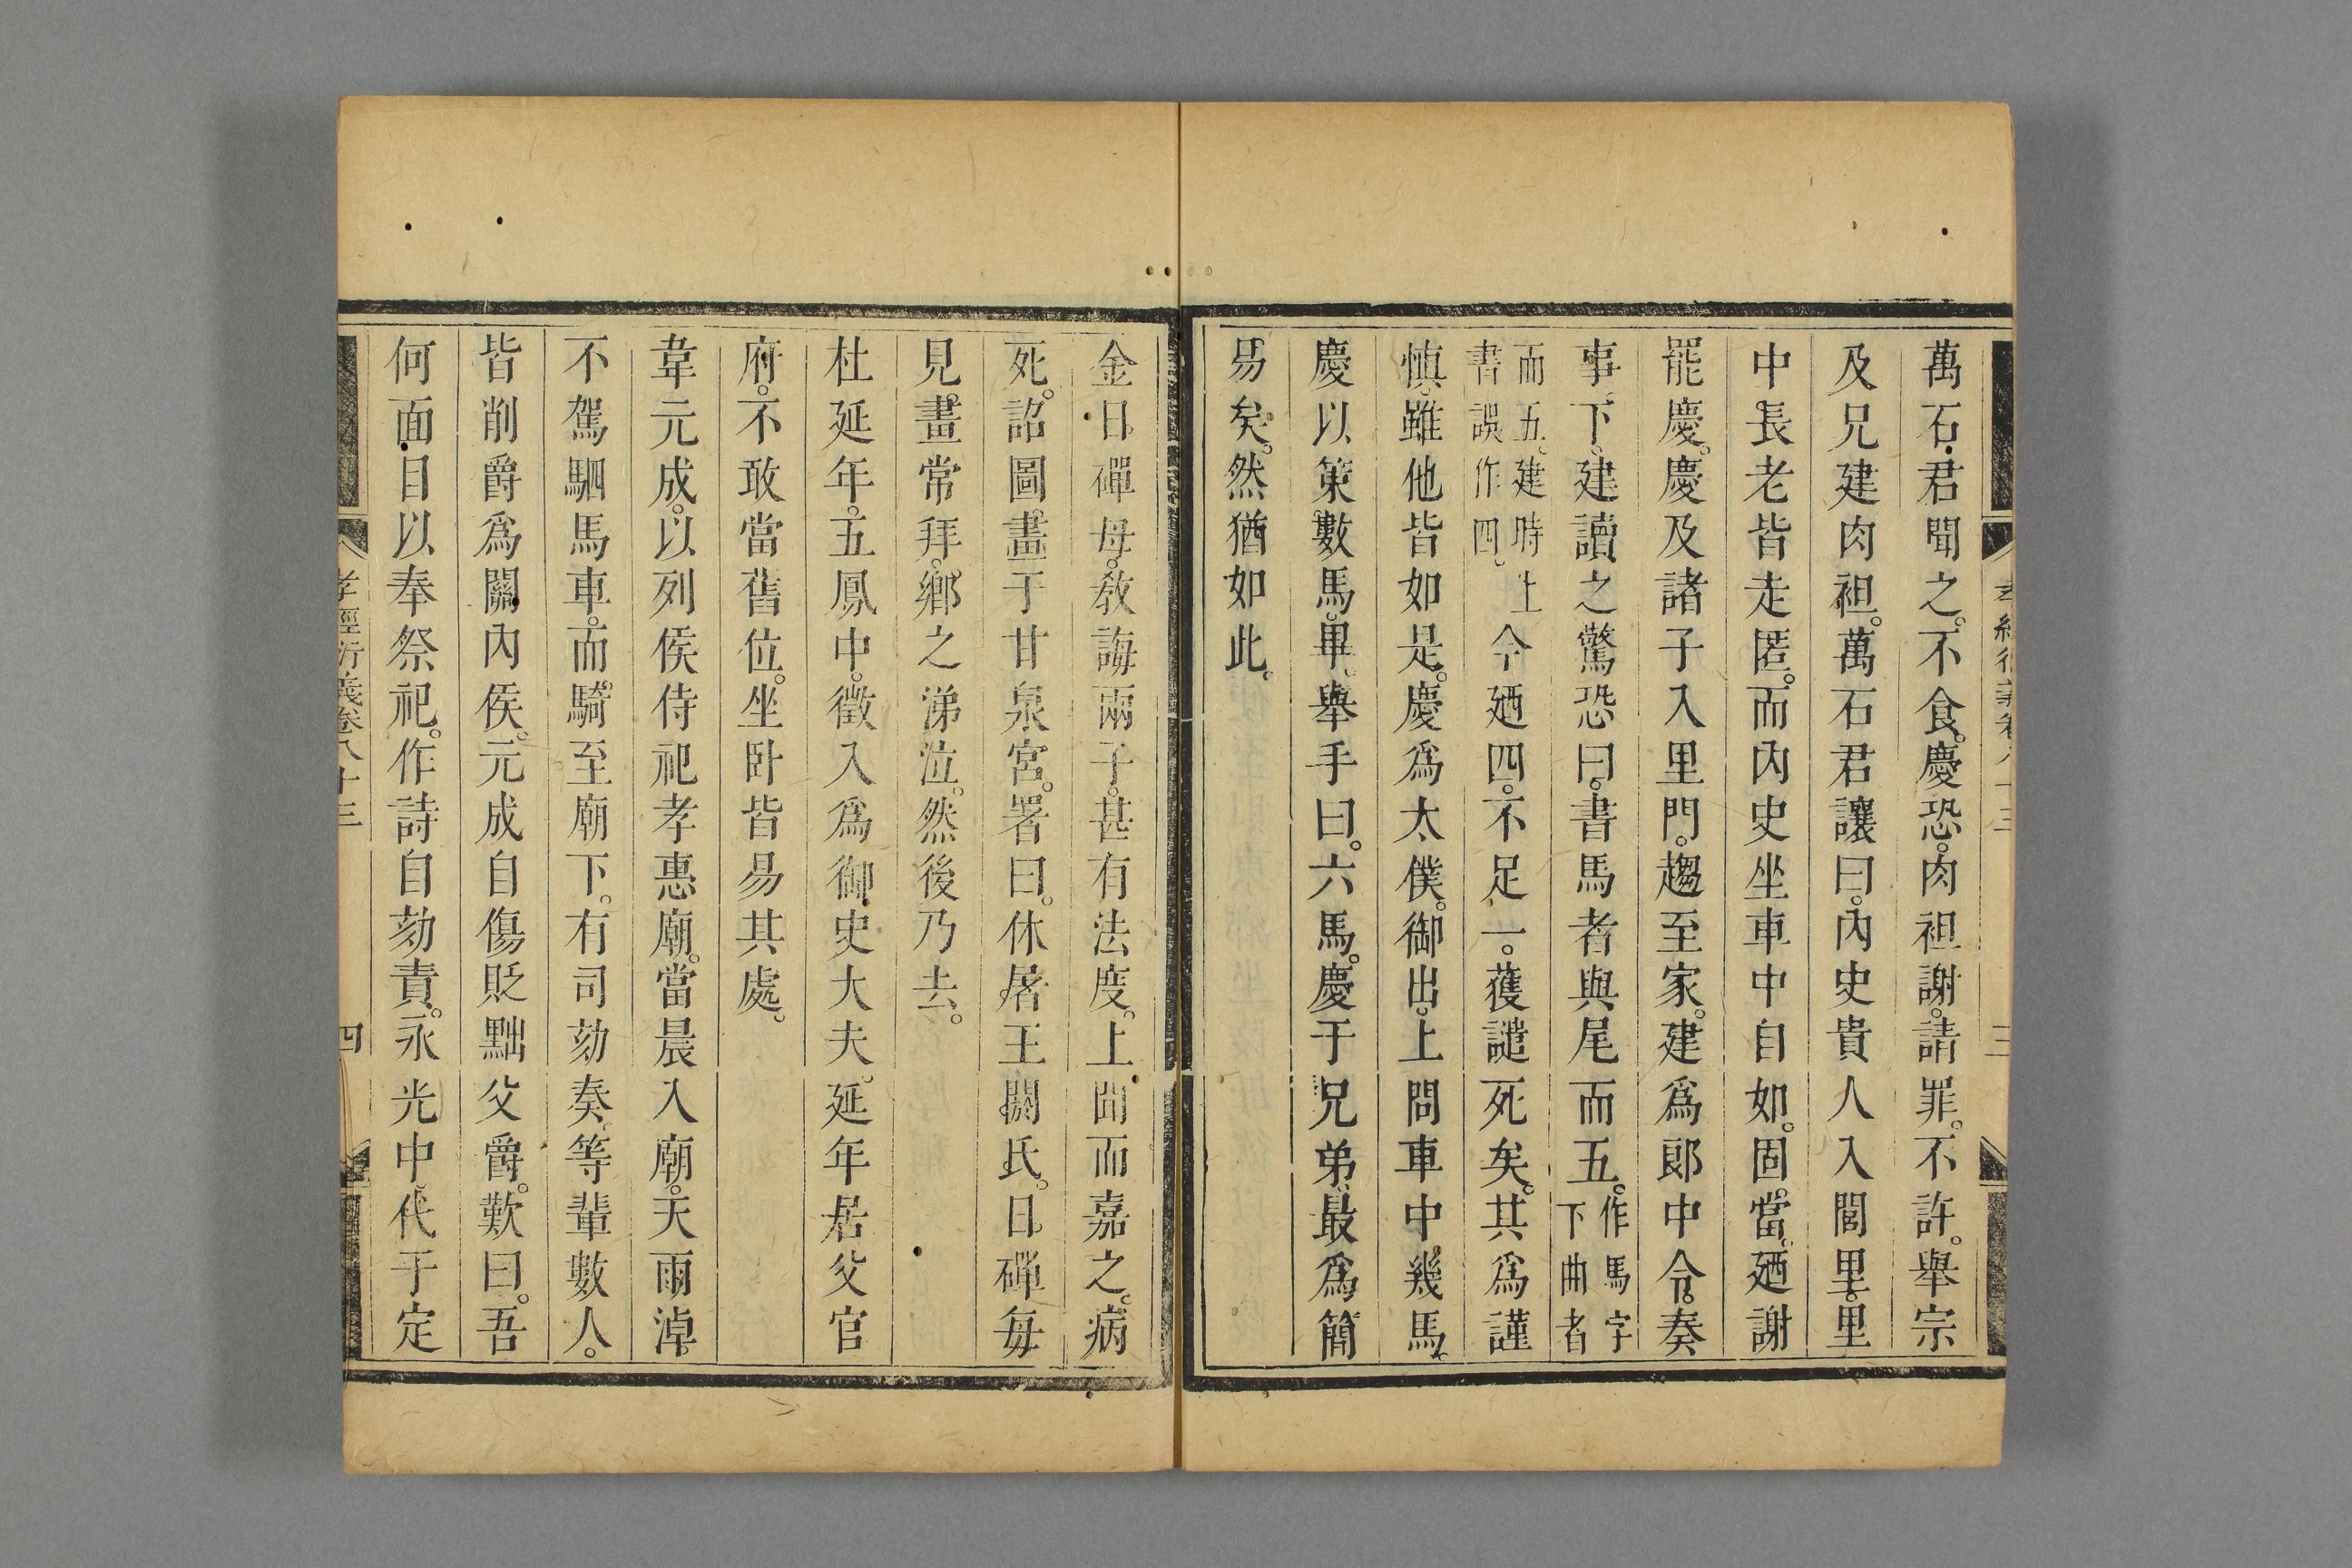 萬石君聞之。不食。慶恐。肉袒謝。請罪。不許。舉宗
及兄建肉袒。萬石君讓曰。內史貴人入閭里。里
中長老皆走匿。而內史坐車中自如。固當。廼謝
罷慶。慶及諸子入里門。趨至家。建為郎中令。奏
事下。建讀之驚恐曰。書馬者與尾而五。作馬字下曲者
而五。建時書誤作四。上今廼四。不足一。獲譴死矣。其為謹
慎。雖他皆如是。慶為太僕。御出。上問車中幾馬。
慶以策數馬。畢。舉手曰。六馬。慶于兄弟最為簡
易矣。然猶如此。
孝經衍義卷八十三
三
金日磾母。敎誨兩子。甚有法度。上聞而嘉之。病
死。詔圖畫于甘泉宮。署曰。休屠王閼氏。日磾每
見畫常拜。鄉之涕泣。然後乃去。
杜延年。五鳳中。徵入為御史大夫。延年居父官
府。不敢當舊位。坐卧皆易其處。
韋元成。以列侯侍祀孝惠廟。當晨入廟。天雨淖。
不駕駟馬車。而騎至廟下。有司劾奏。等輩數人。
皆削爵為關內侯。元成自傷貶黜父爵。歎曰。吾
何面目以奉祭祀。作詩自劾責。永光中。代于定
孝經衍義卷八十三
四